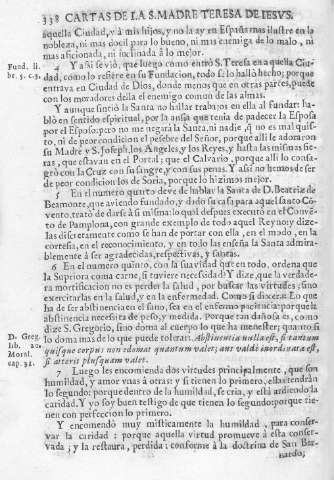 338 CARTAS DE LA S. MADRE TERESA DE IESVS.
aquella Ciudad, y à mis hijos, y no la ay en España mas ilustre en la
nobleza, ni mas docil para lo bueno, ni mas enemiga de lo malo, ni
mas aficionada, ni inclinada à lo mejor.
Fund. li.
br. 5. c.3.
4 Y assi se viò, que luego como entrò S. Teresa en aquella Ciu-
dad, como lo refiere en su Fundacion, todo se lo hallò hecho; porque
entrava en Ciudad de Dios, donde menos que en otras partes, puede
con los moradores della el enemigo comun de las almas.
Y aunque sintiò la Santa no hallar trabajos en ella al fundar: ha-
blò en sentido espiritual, por la ansia que tenia de padecer la Esposa
por el Esposo: pero no me negarà la Santa, ni nadie, q no es mal quis-
to, ni de peor condicion el pesebre del Señor, porque alli le adoraron
su Madre y S. Joseph, los Angeles, y los Reyes, y hasta las mismas fie-
ras, que estavan en el Portal; que el Calvario, porque alli lo consa-
grò con la Cruz con su sangre, y con sus penas. Y assi no hemos de ser
de peor condicion los de Soria, porque lo hizimos mejor.
5 En el numero quinto deve de hablar la Santa de D. Beatriz de
Beamonte, que aviendo fundado, y dado su casa para aquel santo Cō-
vento, tratò de darse à sì misma: lo qual despues executò en el Conve-
to de Pamplona, con grande exemplo de todo aquel Reyno; y dize-
las discretamente como se han de portar con ella, en el modo, en la
cortesia, en el reconocimiento, y en todo las enseña la Santa admira-
blemente à ser agradecidas, respectivas, y santas.
6 En el numero quinto, con la suavidad que en todo, ordena que
la Supriora coma carne, si tuviere necessidad: Y dize, que la verdade-
ra mortificacion no es perder la salud, por buscar las virtudes; sino
exercitarlas en la salud, y en la enfermedad. Como si dixera: Lo que
ha de ser abstinencia en el sano, sea en el enfermo paciencia: porque la
abstinencia necessita de peso, y medida. Porque tan dañosa es, como
dize S. Gregorio, sino doma al cuerpo lo que ha menester; quanto si
D. Greg.
lib. 20.
Moral.
cap. 31.
lo doma mas de lo que puede tolerar. Abstinentia nulla est, si tantum
quisque corpus non edomat quantum valet; aut valde inordinata est,
si atterit plusquam valet.
7 Luego les encomienda dos virtudes principalmente, que son
humildad, y amor vnas à otras: y si tienen lo primero, ellas tendràn
lo segundo: porque dentro de la humildad, se cria, y està ardiendo la
caridad. Y yo soy buen testigo de que tienen lo segundo: porque tie-
nen con perfeccion lo primero.
Y encomendò muy misticamente la humildad, para conser-
var la caridad: porque aquella virtud promueve à esta conser-
vada; y la restaura, perdida: conforme à la doctrina de San Ber-
nardo;